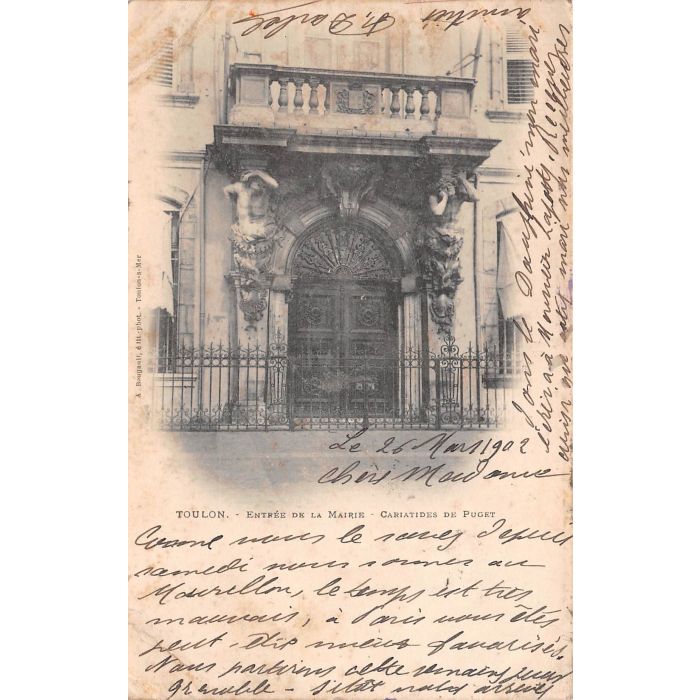 A. Bougault, édit.-phot. - Toulon-s-Mer
Le 26 Mars 1902
Chère Madame
TOULON. - Entrée de la Mairie - Cariatides de Puget
Comme vous le savez depuis
samedi nous sommes au
Mourillon, le temps est très
mauvais, à Paris vous êtes
peut-être mieux favorisés.
Nous partirons cette semaine pour
Grenoble -
dans le Dauphiné mon mari
écrira à Monsieur
mari nos meilleures